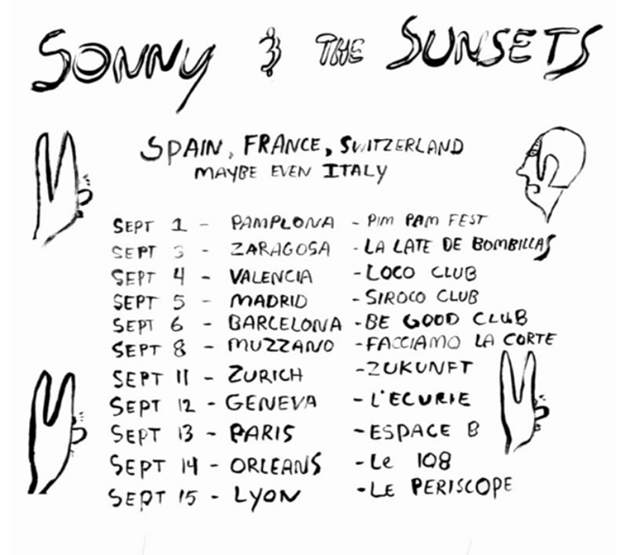 SONNY & THE SUNSETS
SPAIN, FRANCE, SWITZERLAND
MAYBE EVEN ITALY
SEPT 1 - PAMPLONA - PIM PAM FEST
SEPT 3 - ZARAGOSA - LA LATE DE BOMBILLAS
SEPT 4 - VALENCIA - LOCO CLUB
SEPT 5 - MADRID - SIROCO CLUB
SEPT 6 - BARCELONA - BE GOOD CLUB
SEPT 8 - MUZZANO - FACCIAMO LA CORTE
SEPT 11 - ZURICH - ZUKUNFT
SEPT 12 - GENEVA - L'ECURIE
SEPT 13 - PARIS - ESPACE B
SEPT 14 - ORLEANS - Le 108
SEPT 15 - LYON - LE PERISCOPE